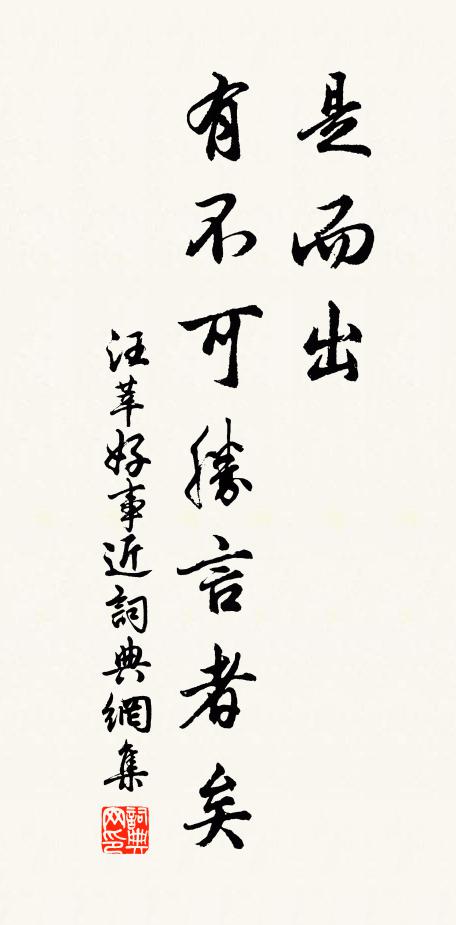 是而出
有不可勝言者矣
汪莘好事近詞典網集
詞典网印